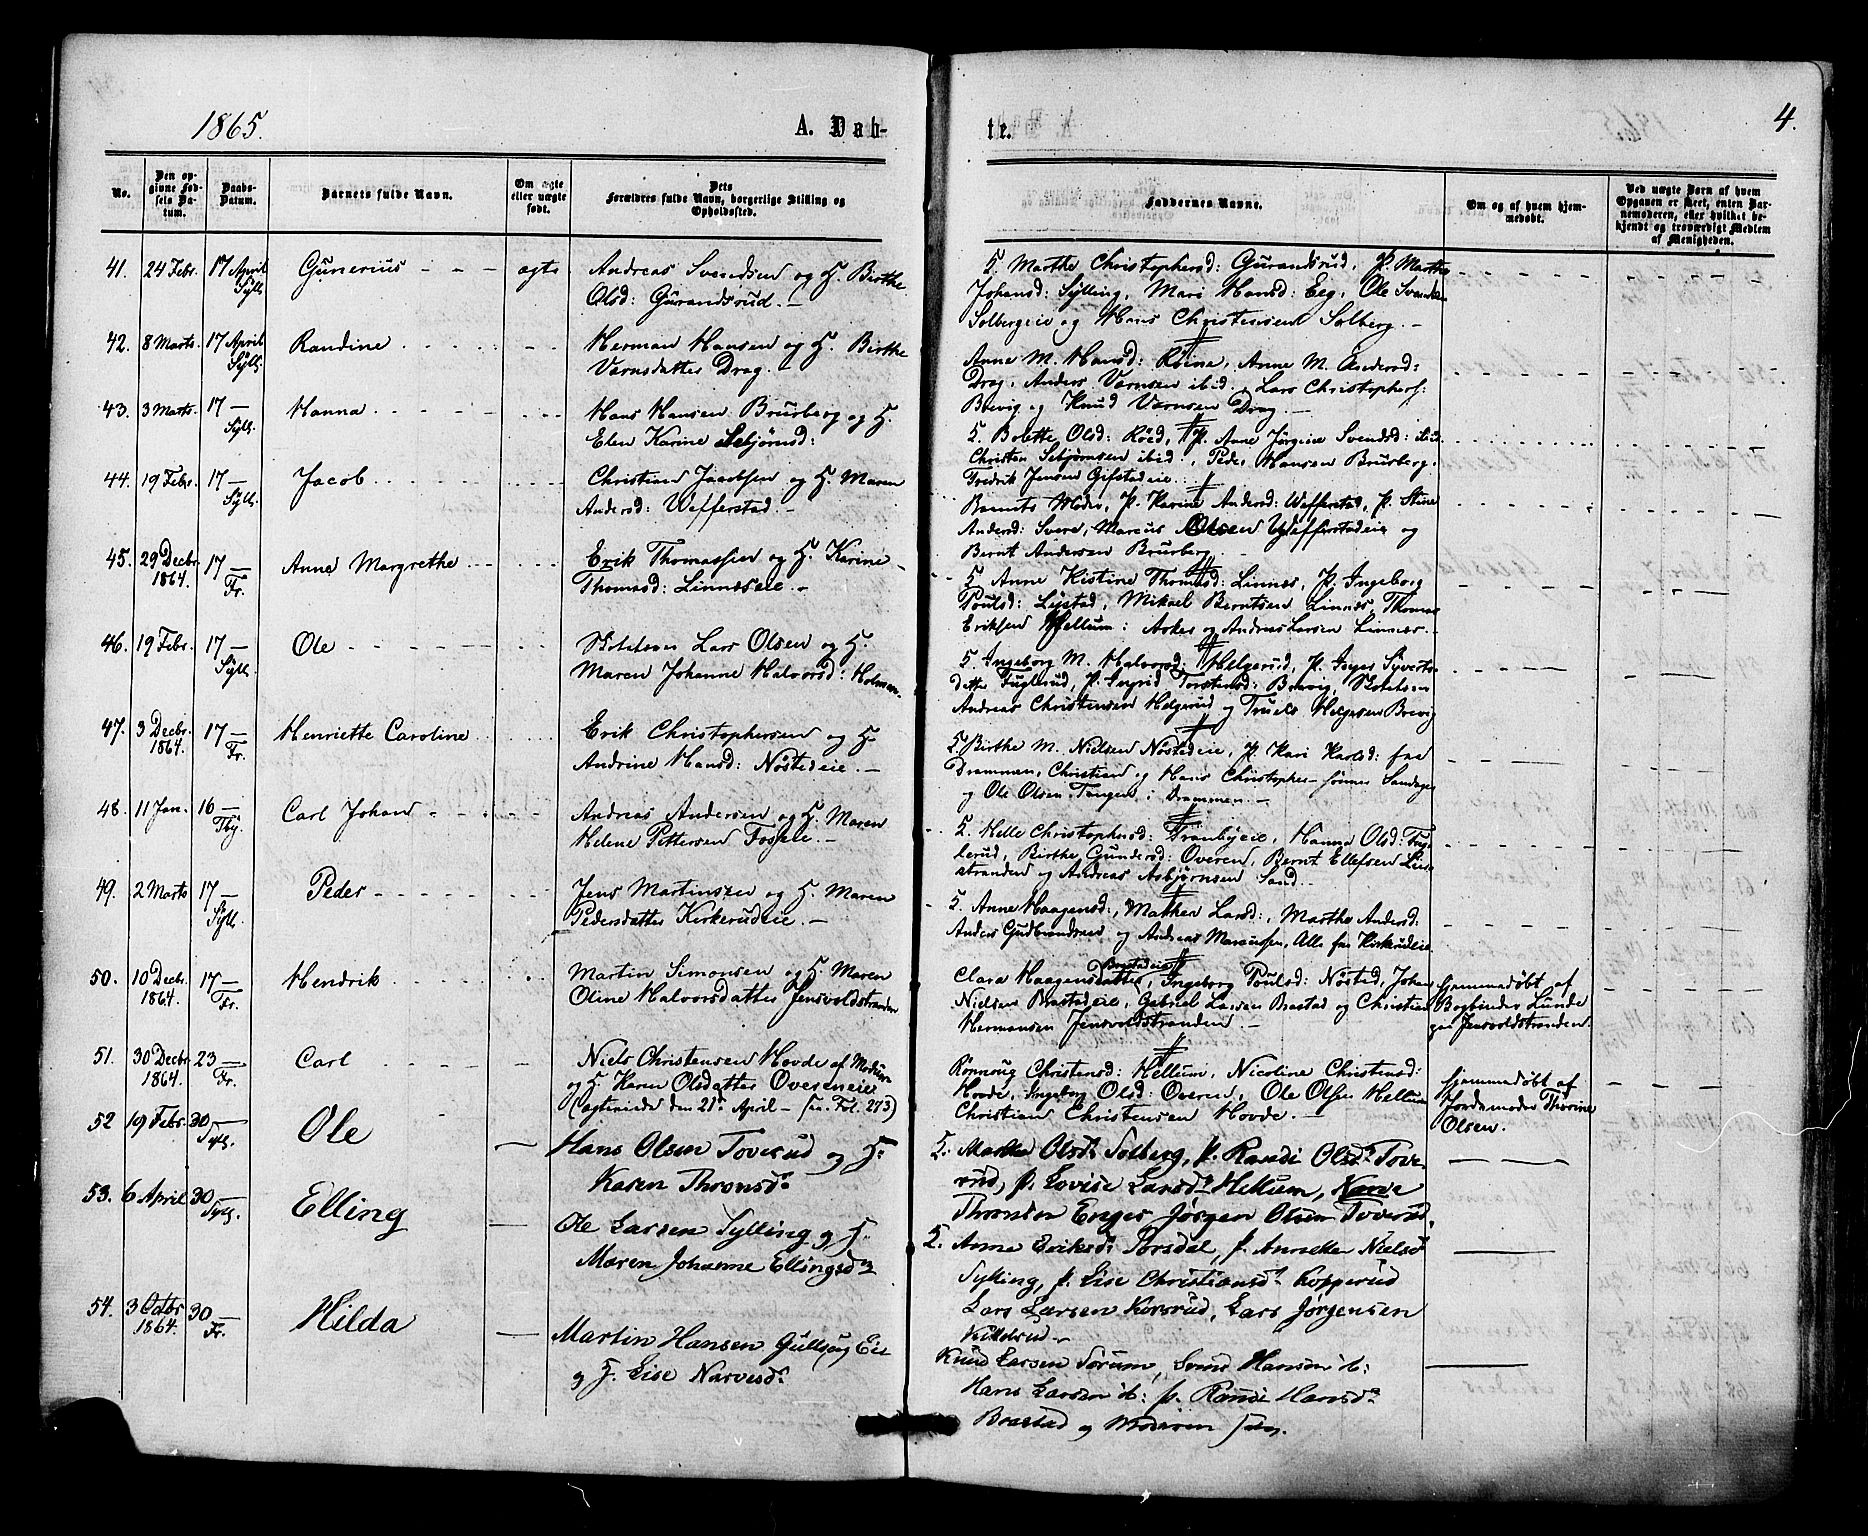 1865.
A. Døb-
te.
4.
No.
Den op-
givne Fød-
sels Da-
tum.
Daabs-
Datum.
Barnets fulde Navn.
Om ægte
eller uægte
født.
Dets
Forældres fulde Navn, borgerlige Stilling og
Opholdssted.
Faddernes Navne.
Om og af hvem hjem-
medøbt.
Ved uægte Børn af hvem
Opgaven er skeet, enten Bar-
nemoderen, eller hvilket be-
kjendt og troværdigt Medlem
af Menigheden.
41. 24 Febr. 17 April Gunerius ægte Andreas Svendsen og H. Birthe
Syll. Olsd: Gurandsrud.
5. Marthe Christophersd: Gurandsrud, P. Marthe
Johansd: Sylling, Mari Hansd: Eeg, Ole Svends.
Solbergeie og Hans Christensen Solberg.
42. 8 Marts. 17 April Randine Herman Hansen og H. Birthe
Syll. Varnsdatter Drag.
Anne M. Hansd: Röine, Anne M. Andersd:
Drag, Anders Varnsen ibid. Lars Christophers:
Boevig og Knud Varnsen Drag.
43. 3 Marts. 17 Hanna Hans Hansen Brurberg og H.
Syll. Elen Karine Sebjørnsd:
5. Bolette Olsd: Röed, P. Anne Jørgine Svendsd: ibid
Christen Sebjørnsen ibid, Peder Hansen Brurberg,
Fredrik Jensen Gifstadeie.
44. 19 Febr. 17 Jacob Christian Jacobsen og H. Maren
Syll. Andersd: Wefferstad.
Barnets Moder, P. Karine Andersd: Wefferstad, P. Stine
Andersd: Svere, Marcus Olsen Wefferstadeie og
Bernt Andersen Brurberg.
45. 29 Decbr. 1864. 17 Anne Margrethe Erik Thomassen og H. Karine
Fr. Thomasd: Linneseie.
5. Anne Kistine Thomasd: Linnes, P. Ingeborg
Poulsd: Lystad, Mikael Berntsen Linnes, Thomas
Eriksen Hellum: Asker og Andreas Larsen Linnes.
46. 19 Febr. 17 Ole Lars Olsen og H.
Syll. Maren Johanne Halvorsd: Holmen.
5. Ingeborg M. Halvorsd: Helgerud, P. Inger Syverts-
datter Fuglerud, P. Ingrid Torstensd: Brevig,
Andreas Christensen Helgerud og Truels Helgesen Brevig
47. 3 Decbr. 1864. 17 Henriette Caroline Erik Christophersen og H.
Fr. Andrine Hansd: Nöstedeie.
5. Birthe M. Nielsen Nöstedeie, P. Kari Karlsd: fra
Drammen, Christian og Hans Christopher-sønner Sandager
og Ole Olsen Tangen i Drammen.
48. 11 Jan. 16 Carl Johan Andreas Andersen og H. Maren
Tby. Helene Pettersen Fosseie.
5. Helle Christophersd: Tranbyeie, Hanna Olsd: Fug-
lerud, Birthe Gundersd: Overen, Bernt Ellefsen Lier-
stranden og Andreas Asbjørnsen Sand.
49. 2 Marts 17 Peder Jens Martinsen og H. Maren
Syll. Pedersdatter Kirkerudeie.
5. Anne Haagensd:, Mathea Larsd:, Marthe Andersd:
Anders Gudbrandsen og Andreas Marcussen, Alle fra Kirkerudeie
50. 10 Decbr. 1864. 17 Hendrik Martin Simonsen og H. Maren
Fr. Oline Halvorsdatter Jensvoldstranden
Brastadeie
Clara Haagensdatter, Ingeborg Poulsd: Nösted, Johan
Nielsen Brastadeie, Gabriel Larsen Brastad og Christian
Hermansen Jensvoldstranden.
hjemmedøbt af
Bogbinder Lunde
paa Jensvoldstranden.
51. 30 Decbr. 1864. 23 Carl Niels Christensen Hovde af Modum
Fr. og H. Karen Olsdatter Overeneie
(ægteviede den 21de April - se Fol. 273)
Rønnoug Christensd: Hellum, Nicoline Christensd:
Hovde, Ingeborg Olsd: Overen, Ole Olsen Hellum
Christian Christensen Hovde.
hjemmedøbt af
Jordemoder Thorine
Olsen.
52 19 Febr. 30 Ole Hans Olsen Toverud og H.
Syll. Karen Thronsd.
5. Marthe Olsd. Solberg, p. Randi Olsd. Tove-
rud, p. Lovise Larsd. Hellum, Narve
Thronsen Enger Jørgen Olsen Toverud.
53. 6 April 30 Elling Ole Larsen Sylling og H.
Syll. Maren Johanne Ellingsd.
5. Anne Eriksd. Torsdal, p. Annette Nielsd.
Sylling, p. Lise Christiansd. Kopperud
Lars Larsen Korsrud, Lars Jørgensen
Kittelsrud.
54. 3 Octbr. 1864. 30 Hilda Martin Hansen Gullaug Eie
Fr. og H. Lise Narvesd.
Knud Larsen Sørum, Svend Hansen ib:
Hans Larsen ib: p. Randi Hansd.
Brastad og Moderen selv.